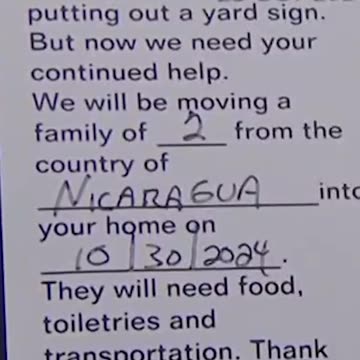 putting out a yard sign.
But now we need your
continued help.
We will be moving a
family of 2 from the
country of
NICARAGUA into
your home on
10/30/2024.
They will need food,
toiletries and
transportation. Thank